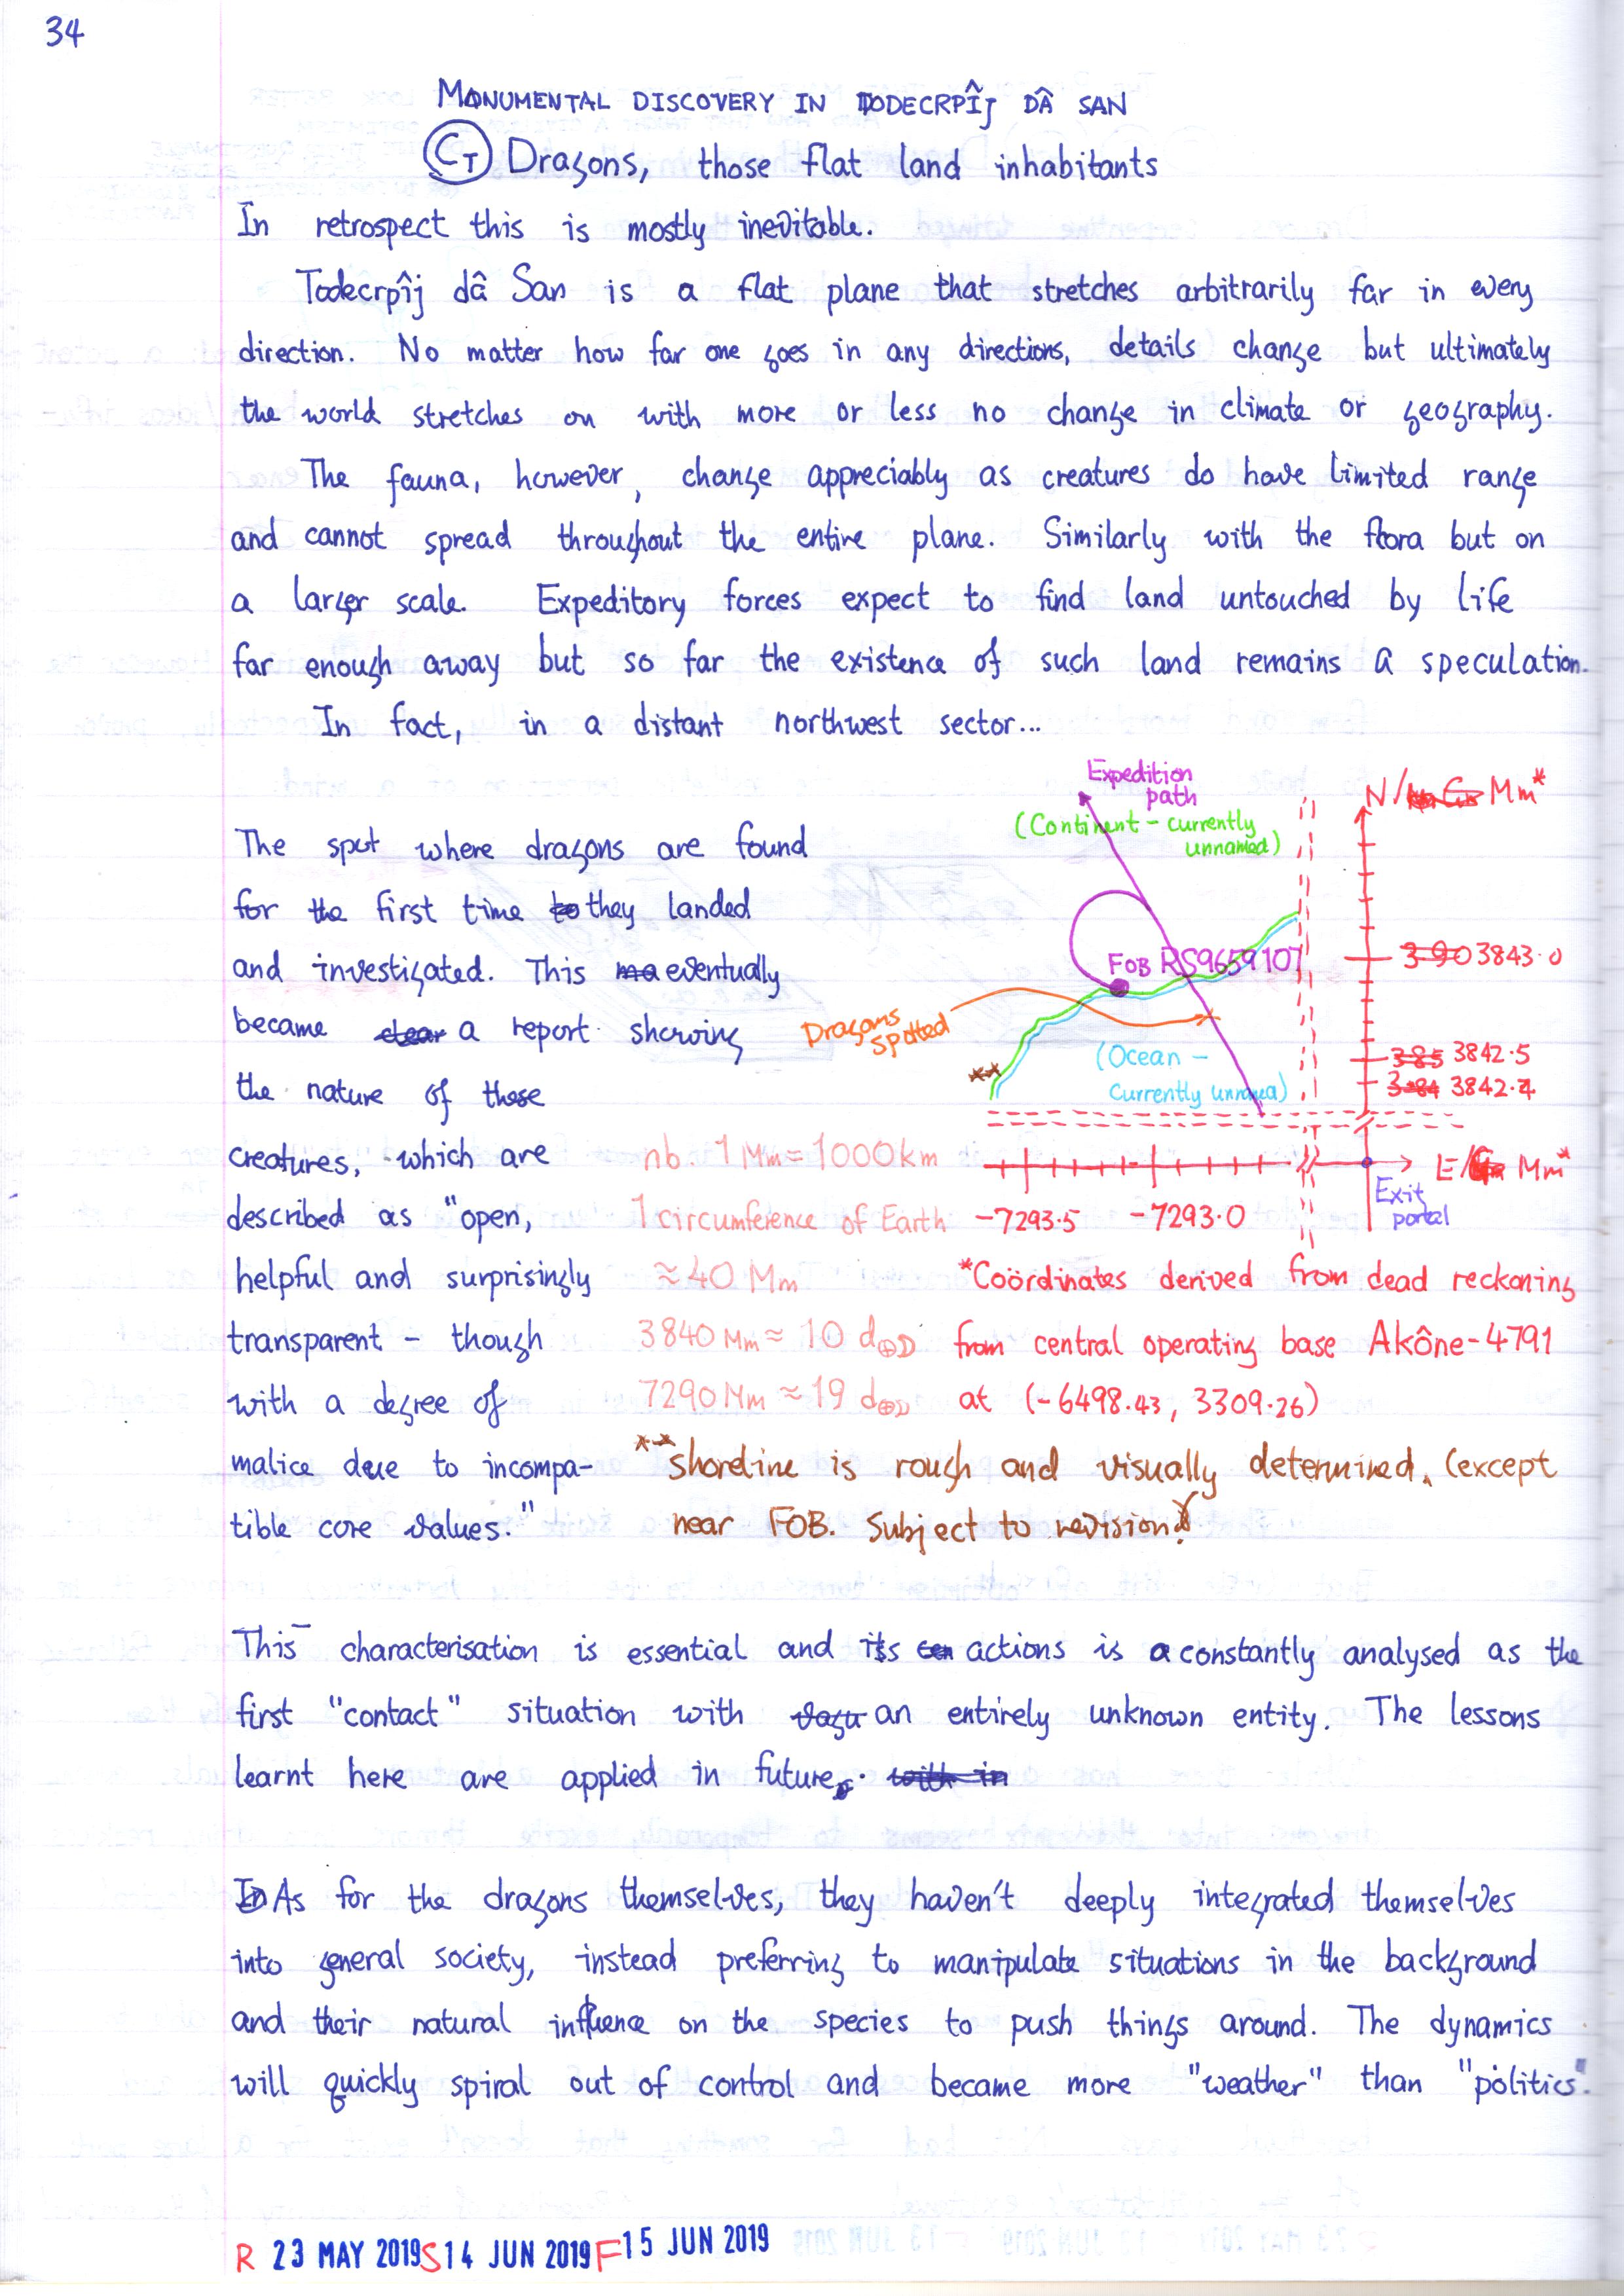 34
MONUMENTAL DISCOVERY IN TODECRPÎJ DÂ SAN
CT Dragons, those flat land inhabitants
In retrospect this is mostly inevitable.
Todecrpîj dâ San is a flat plane that stretches arbitrarily far in every
direction. No matter how far one goes in any directions, details change but ultimately
the world stretches on with more or less no change in climate or geography.
The fauna, however, change appreciably as creatures do have limited range
and cannot spread throughout the entire plane. Similarly with the flora but on
a larger scale. Expeditory forces expect to find land untouched by life
far enough away but so far the existence of such land remains a speculation.
In fact, in a distant northwest sector...
The spot where dragons are found
for the first time they landed
and investigated. This eventually
became a report showing
the nature of these
creatures, which are
described as "open,
helpful and surprisingly
transparent – though
with a degree of
malice due to incompa-
tible core values."
Expedition
path
(Continent – currently
unnamed)
FOB RS9659107
Dragons
spotted
(Ocean –
Currently unnamed)
**
N/ Mm*
3843.0
3842.5
3842.4
E/ Mm*
Exit
portal
-7293.5 -7293.0
nb. 1 Mm = 1000km
1 circumference of Earth
≈ 40 Mm
3840 Mm ≈ 10 d⊕☽
7290 Mm ≈ 19 d⊕☽
*Coördinates derived from dead reckoning
from central operating base Akône-4791
at (-6498.43, 3309.26)
**shoreline is rough and visually determined, (except
near FOB. Subject to revision.)
This characterisation is essential and its actions is constantly analysed as the
first "contact" situation with an entirely unknown entity. The lessons
learnt here are applied in future.
As for the dragons themselves, they haven't deeply integrated themselves
into general society, instead preferring to manipulate situations in the background
and their natural influence on the species to push things around. The dynamics
will quickly spiral out of control and became more "weather" than "politics".
R 23 MAY 2019 S 14 JUN 2019 F 15 JUN 2019